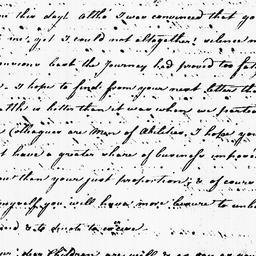 in this day altho I was convinced that yo
me; yet I could not altogether
back the Journey had proved too fat
I hope to find from your next letter th
is better than it was when we parted
Colleagues are Men of Abilities, I hope you
have a greater share of business impos
than your just proportion; & of course
you will have more leisure to
to
dear Children are well &